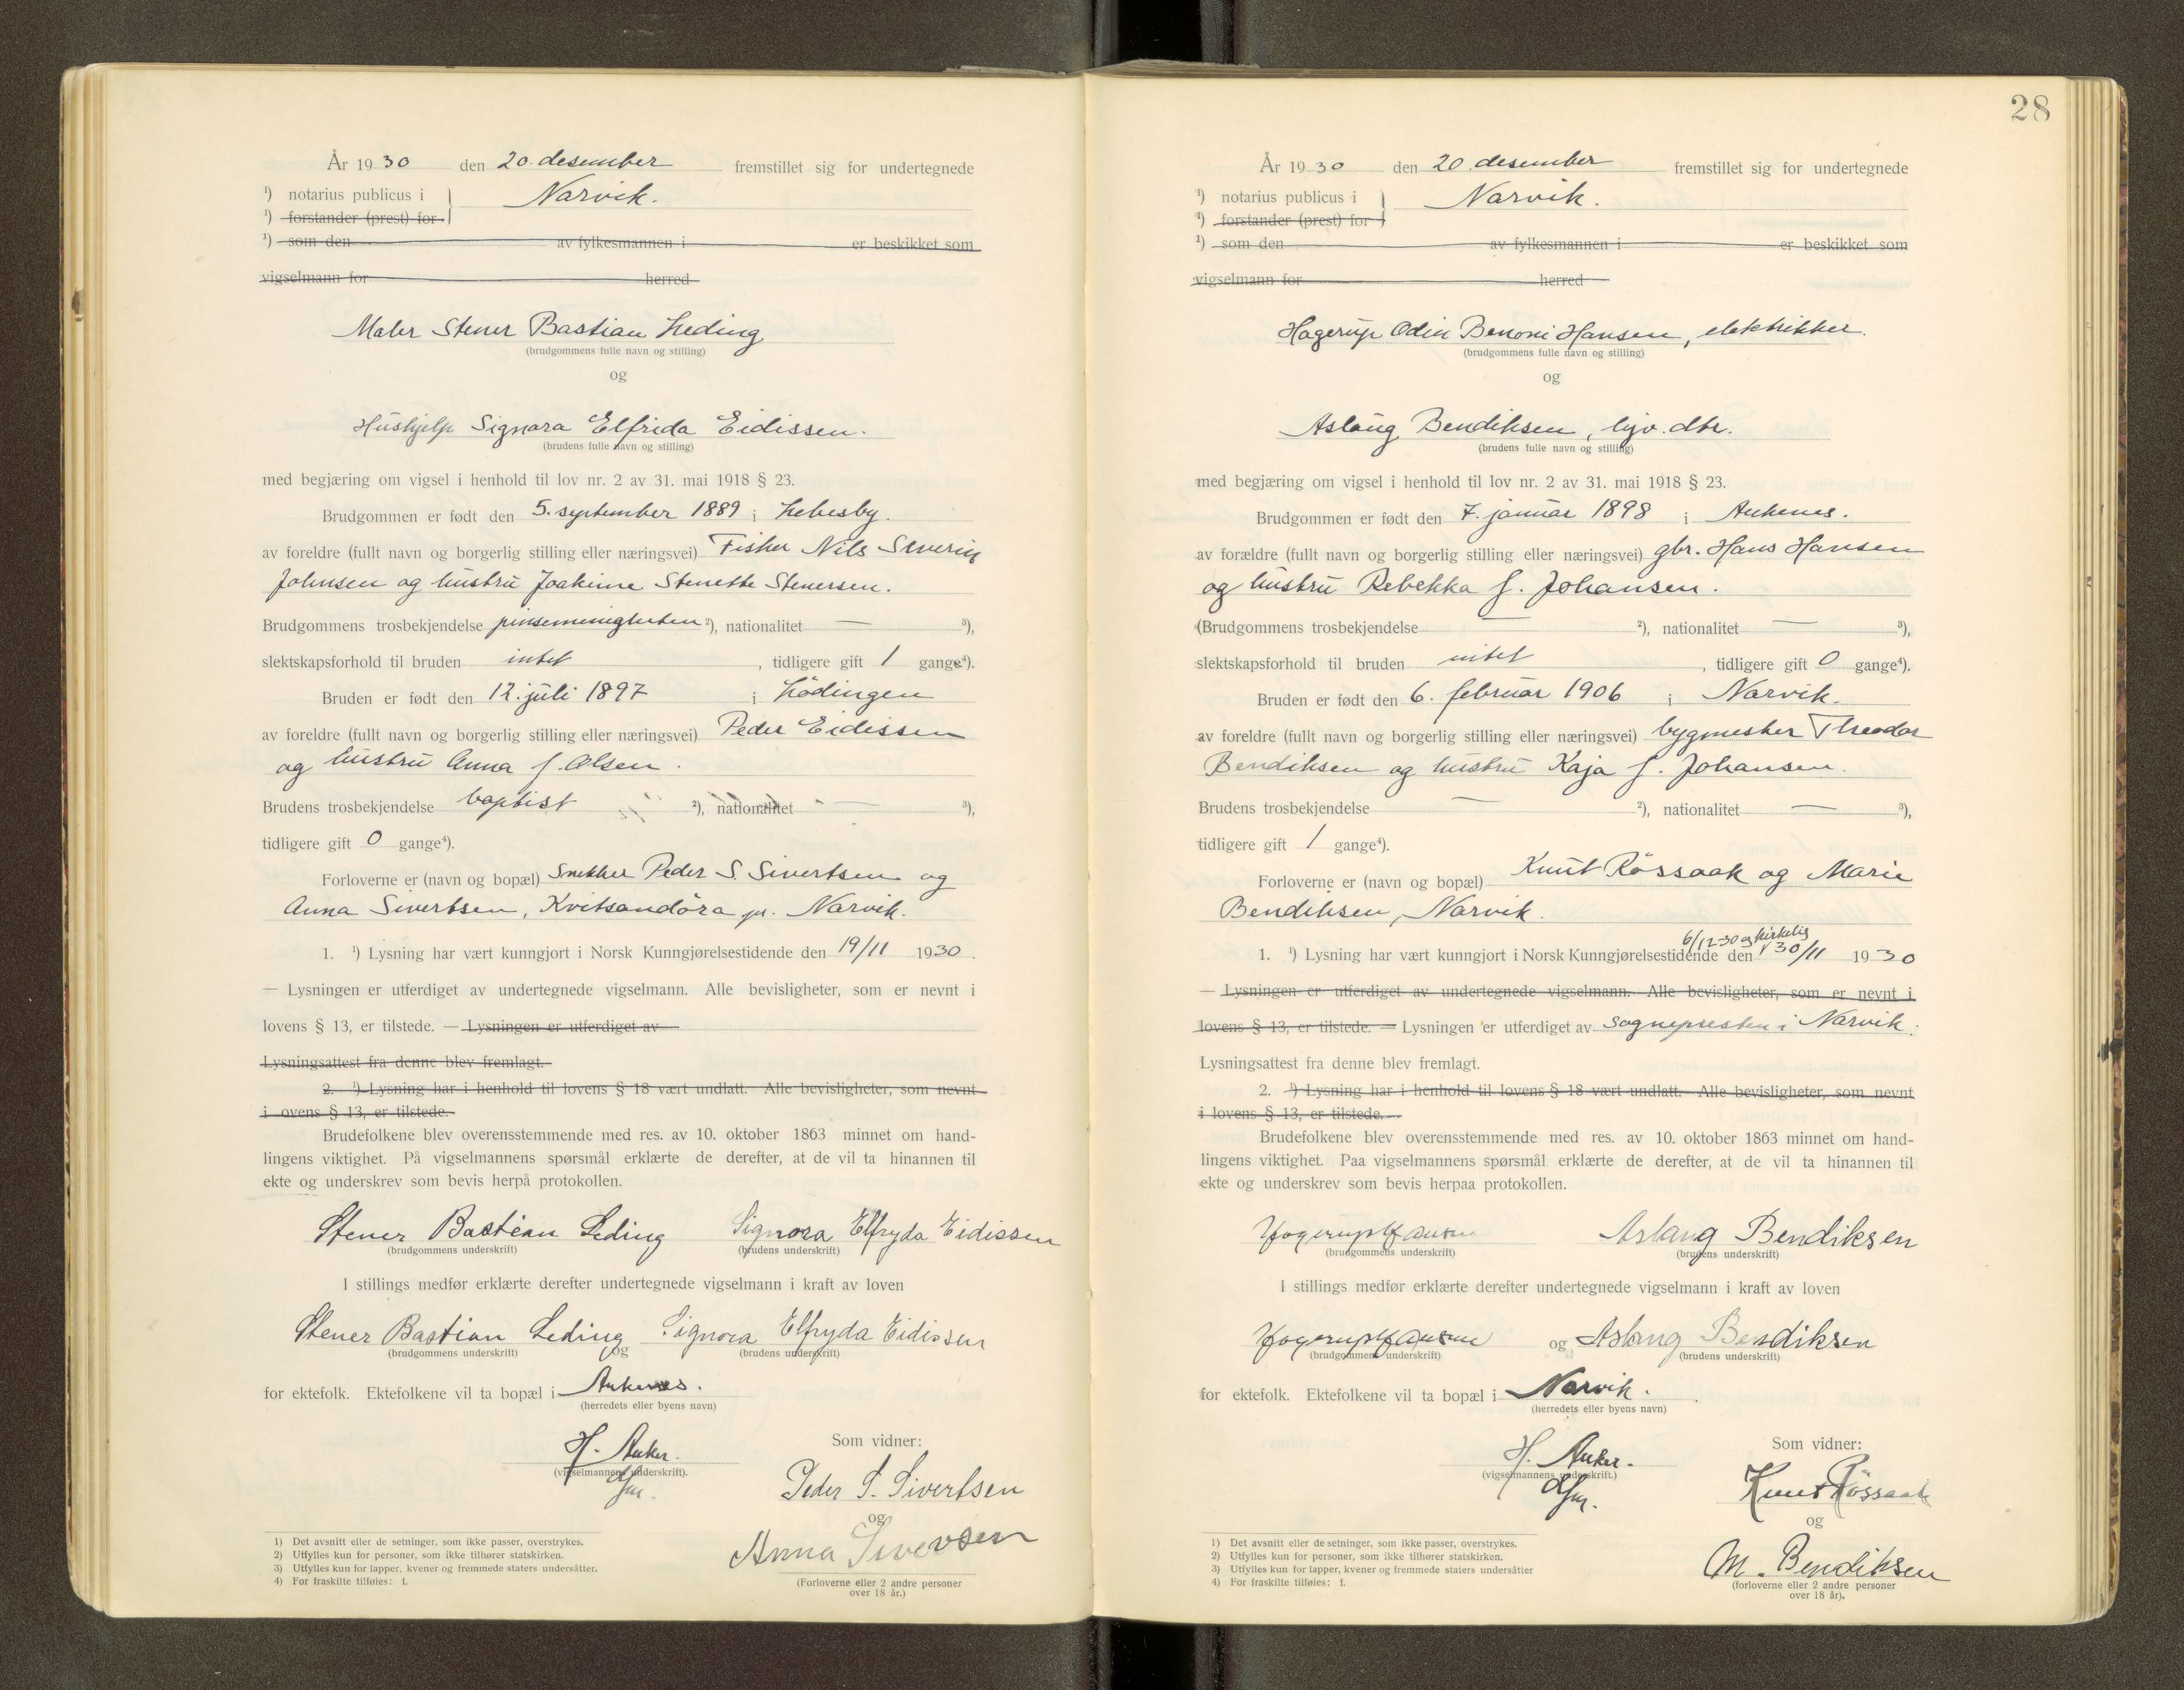 År 1930 den 20. desember fremstillet sig for undertegnede
¹) notarius publicus i } Narvik.
¹) forstander (prest) for
¹) som den av fylkesmannen i er beskikket som
vigselmann for herred
Maler Stener Bastian Leding
(brudgommens fulle navn og stilling)
og
Hushjelp Signora Elfrida Eidissen.
(brudens fulle navn og stilling)
med begjæring om vigsel i henhold til lov nr. 2 av 31. mai 1918 § 23.
Brudgommen er født den 5. september 1889 i Lebesby.
av foreldre (fullt navn og borgerlig stilling eller næringsvei) Fisker Nils Severin
Johnsen og hustru Joakime Stenette Stenersen.
Brudgommens trosbekjendelse pinsemenigheten ²), nationalitet — ³),
slektskapsforhold til bruden intet, tidligere gift 1 gange⁴).
Bruden er født den 12. juli 1897 i Lödingen
av foreldre (fullt navn og borgerlig stilling eller næringsvei) Peder Eidissen
og hustru Anna f. Olsen.
Brudens trosbekjendelse baptist ²), nationalitet — ³),
tidligere gift 0 gange⁴).
Forloverne er (navn og bopæl) Snekker Peder S. Sivertsen og
Anna Sivertsen, Kvitsandöra pr. Narvik.
1. ¹) Lysning har vært kunngjort i Norsk Kunngjørelsestidende den 19/11 1930.
— Lysningen er utferdiget av undertegnede vigselmann. Alle bevisligheter, som er nevnt i
lovens § 13, er tilstede. — Lysningen er utferdiget av
Lysningsattest fra denne blev fremlagt.
2. ¹) Lysning har i henhold til lovens § 18 vært undlatt. Alle bevisligheter, som nevnt
i ovens § 13, er tilstede.
Brudefolkene blev overensstemmende med res. av 10. oktober 1863 minnet om hand-
lingens viktighet. På vigselmannens spørsmål erklærte de derefter, at de vil ta hinannen til
ekte og underskrev som bevis herpå protokollen.
Stener Bastian Leding Signora Elfryda Eidissen
(brudgommens underskrift) (brudens underskrift)
I stillings medfør erklærte derefter undertegnede vigselmann i kraft av loven
Stener Bastian Leding og Signora Elfryda Eidissen
(brudgommens underskrift) (brudens underskrift)
for ektefolk. Ektefolkene vil ta bopæl i Ankenes.
(herredets eller byens navn)
H. Anker.
(vigselmannens underskrift).
Som vidner:
Peder S. Sivertsen
og
Anna Siversen
(Forloverne eller 2 andre personer
over 18 år.)
1) Det avsnitt eller de setninger, som ikke passer, overstrykes.
2) Utfylles kun for personer, som ikke tilhører statskirken.
3) Utfylles kun for lapper, kvener og fremmede staters undersåtter.
4) For fraskilte tilføies: f.
28
År 1930 den 20 desember fremstillet sig for undertegnede
¹) notarius publicus i } Narvik.
¹) forstander (prest) for
¹) som den av fylkesmannen i er beskikket som
vigselmann for herred
Hagerup Odin Benoni Hansen, elektrikker.
(brudgommens fulle navn og stilling)
og
Aslaug Bendiksen, hjv. dtr.
(brudens fulle navn og stilling)
med begjæring om vigsel i henhold til lov nr. 2 av 31. mai 1918 § 23.
Brudgommen er født den 7. januar 1898 i Ankenes.
av forældre (fullt navn og borgerlig stilling eller næringsvei) gbr. Hans Hansen
og hustru Rebekka f. Johansen.
(Brudgommens trosbekjendelse — ²), nationalitet — ³),
slektskapsforhold til bruden intet, tidligere gift 0 gange⁴).
Bruden er født den 6. februar 1906 i Narvik.
av foreldre (fullt navn og borgerlig stilling eller næringsvei) bygmester Theodor
Bendiksen og hustru Kaja f. Johansen.
Brudens trosbekjendelse — ²), nationalitet — ³),
tidligere gift 1 gange⁴).
Forloverne er (navn og bopæl) Knut Rössaak og Marie
Bendiksen, Narvik.
6/12-30 og kirkelig
1. ¹) Lysning har vært kunngjort i Norsk Kunngjørelsestidende den 30/11 1930
— Lysningen er utferdiget av undertegnede vigselmann. Alle bevisligheter, som er nevnt i
lovens § 13, er tilstede. — Lysningen er utferdiget av sognepresten i Narvik.
Lysningsattest fra denne blev fremlagt.
2. ¹) Lysning har i henhold til lovens § 18 vært undlatt. Alle bevisligheter, som nevnt
i lovens § 13, er tilstede. —
Brudefolkene blev overensstemmende med res. av 10. oktober 1863 minnet om hand-
lingens viktighet. Paa vigselmannens spørsmål erklærte de derefter, at de vil ta hinannen til
ekte og underskrev som bevis herpaa protokollen.
Hagerup Hansen Aslaug Bendiksen
(brudgommens underskrift) (brudens underskrift)
I stillings medfør erklærte derefter undertegnede vigselmann i kraft av loven
Hagerup Hansen og Aslaug Bendiksen
(brudgommens underskrift) (brudens underskrift)
for ektefolk. Ektefolkene vil ta bopæl i Narvik.
(herredets eller byens navn)
H. Anker.
(vigselmannens underskrift.)
Som vidner:
Knut Rössaak
og
M. Bendiksen
(forloverne eller 2 andre personer
over 18 år).
1) Det avsnitt eller de setninger, som ikke passer, overstrykes.
2) Utfylles kun for personer, som ikke tilhører statskirken.
3) Utfylles kun for lapper, kvener og fremmede staters undersåtter
4) For fraskilte tilføies: f.